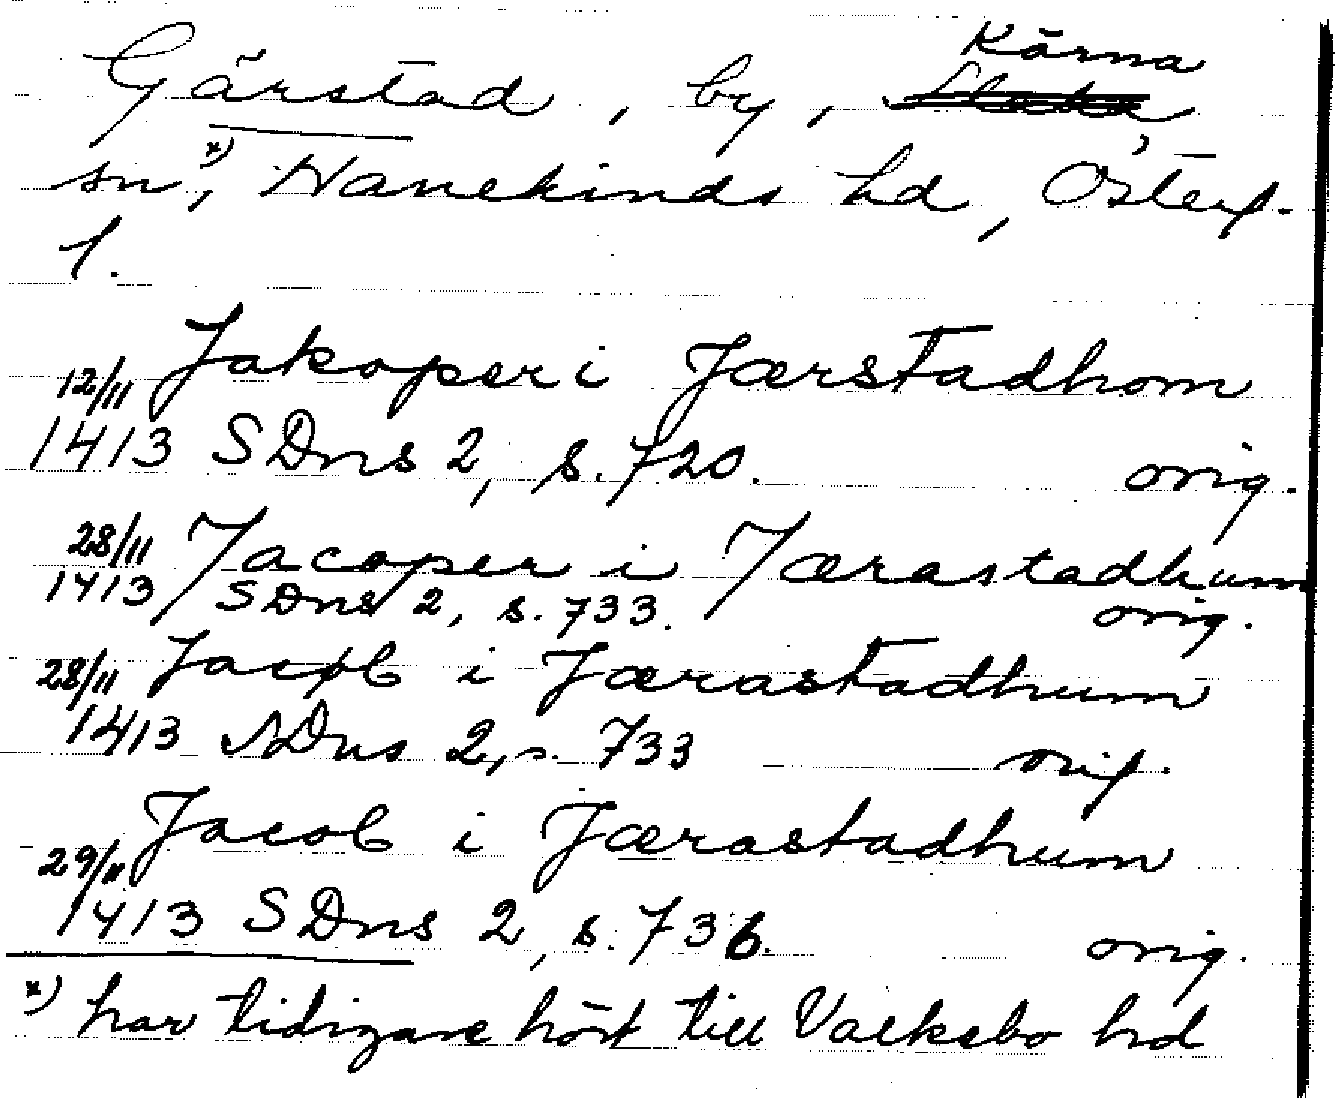 Kärna
Gärstad, by, ~~Slaka~~
sn x), Hanekinds hd, Österg.
l.
12/11 Jakoper i Jærstadhom
1413 SDns 2, s. 720. orig.
28/11 Jacoper i Jærastadhum
1413 SDns 2, s. 733. orig.
28/11 Jacob i Jærastadhum
1413 SDns 2, s. 733 orig.
29/11 Jacob i Jærastadhum
1413 SDns 2, s. 736. orig.
x) har tidigare hört till Valkebo hd